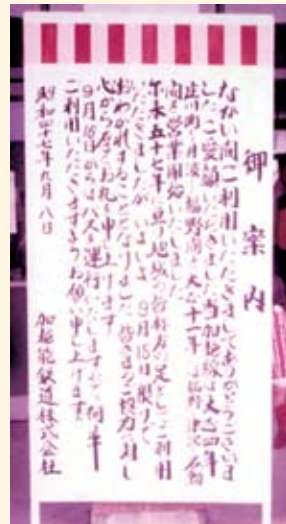 御案内
なかい間ご利用いただきましてありがとうございま
した ご愛顧いただきました当加越線は大正四年
間を営業開始いたしました
年来五十七年に亘り地域の皆様方の足としてご利用
いただきましたが いよいよ 9月15日限りで
おわかれすることになりました 皆さまのご協力に対し
心から厚くお礼を申し上げます
9月16日からはバスを運行いたしますので何卒
ご利用いただきますようお願い申し上げます
昭和四十七年九月八日
加越能鉄道株式会社